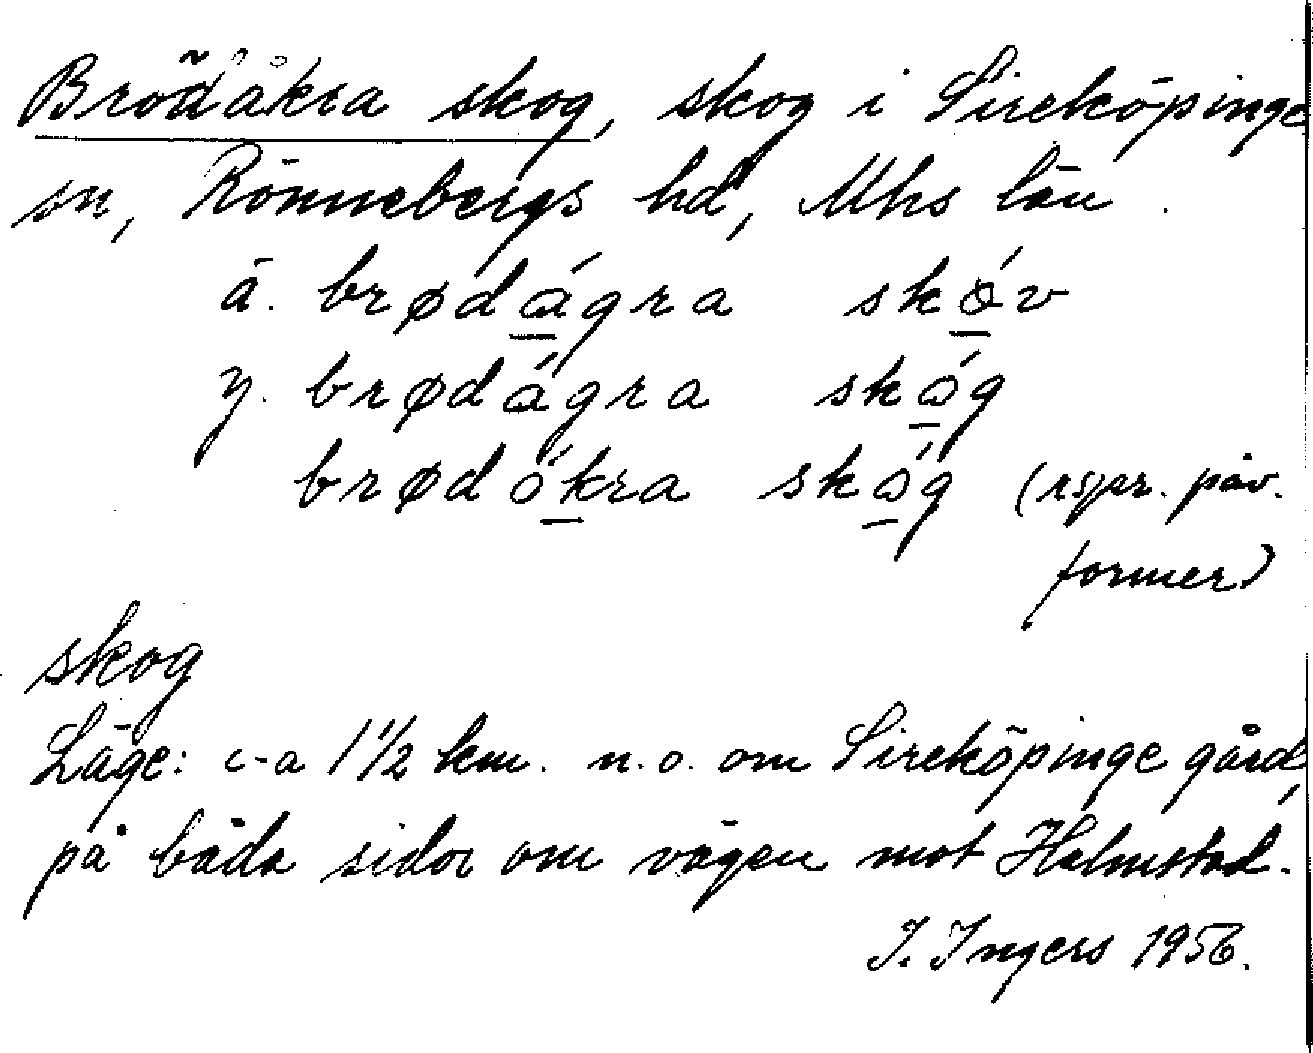 Brödåkra skog, skog i Sireköpinge
sn, Rönnebergs hd, Mhs län.
ä. brødágra skóv
y. brødágra skóg
brødókra skóg (rspr. påv.
former)
skog
Läge: c-a 1 1/2 km. n.o. om Sireköpinge gård,
på båda sidor om vägen mot Halmstad.
I. Ingers 1956.